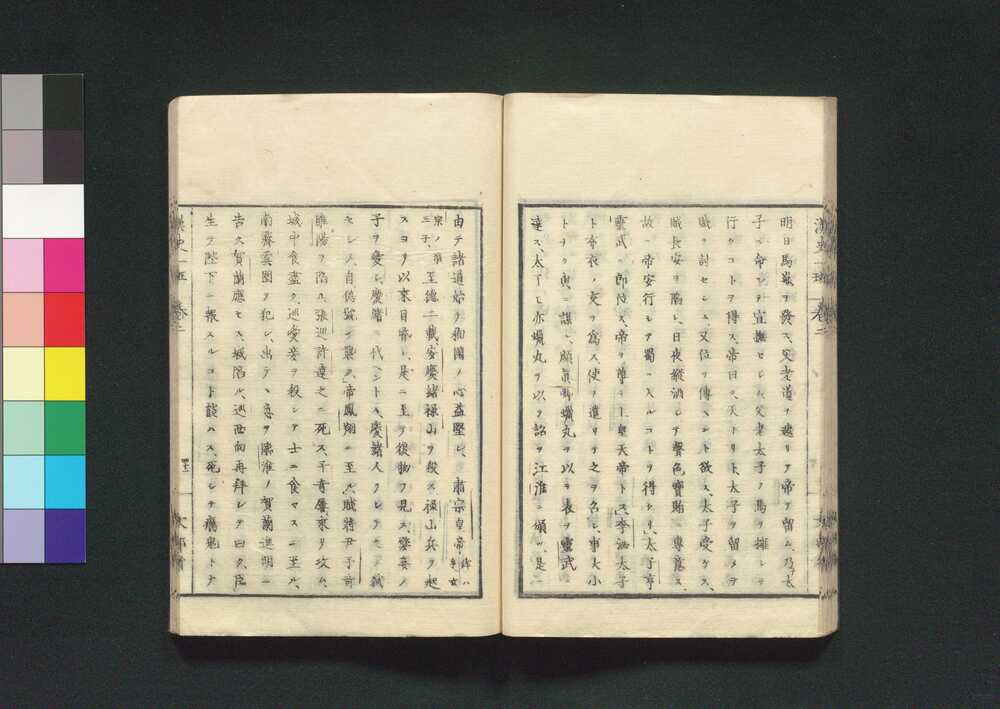 明日馬嵬ヲ發ス、父老道ヲ遮リテ帝ヲ留ム、乃太
子ニ命シテ宣撫セシム、父老太子ノ馬ヲ擁シテ
行クコトヲ得ス、帝曰ク、天ナリト、太子ヲ留メテ
賊ヲ討セシメ、又位ヲ傳ヘント欲ス、太子受ケス、
賊長安ヲ陷レ、日夜縱酒シテ聲色寶賄ニ專意ス、
故ニ帝安行シテ蜀ニ入ルコトヲ得タリ、太子亨
靈武ニ即位ス、帝ヲ尊テ上皇天帝トス、李泌太子
ト布衣ノ交ヲ爲ス、使ヲ遣リテ之ヲ召シ、事大小
トナク與ニ謀ル、顔眞卿蠟丸ヲ以テ表ヲ靈武ニ
達ス、太子モ亦蠟丸ヲ以テ詔ヲ江淮ニ頒ツ、是ニ
漢史一班 卷二
由テ諸道始テ徇國ノ心益堅シ、肅宗皇帝
宗ノ第三子、至德二載、安慶緒祿山ヲ殺ス、祿山兵ヲ起
スヨリ以來目昏シ、是ニ至テ復物ヲ見ス、嬖妾ノ
子ヲ愛シ、慶緒ニ代ヘントス、慶緒人ヲシテ之ヲ弑
セシメ、自僞號ヲ襲ク、帝鳳翔ニ至ル、賊將尹子奇
睢陽ヲ陷ル、張巡許遠之ニ死ス、子奇屢來リ攻ム、
城中食盡ク、巡愛妾ヲ殺シテ士ニ食マスニ至ル、
南霽雲圍ヲ犯シ、出テヽ急ヲ臨淮ノ賀蘭進明ニ
告ク、賀蘭應セス、城陷ル、巡西向再拜シテ曰ク、臣
生テ陛下ニ報スルコト能ハス、死シテ癘鬼トナ
漢史一班 卷二 文部省